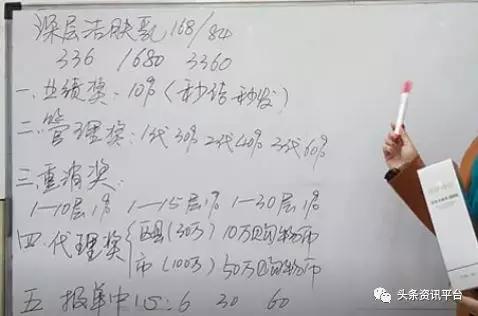 深层洁肤乳 168/84
336 1680 3360
一.业绩奖:10%(秒结秒发)
二.管理奖:1代30% 2代40% 3代60%
三.重消奖:
1—10层1% 1—15层1% 1—30层1%
四.代理奖 区县(30万) 10万回购物币
市(100万) 50万回购物币
五 报单中心:6 30 60
头条资讯平台